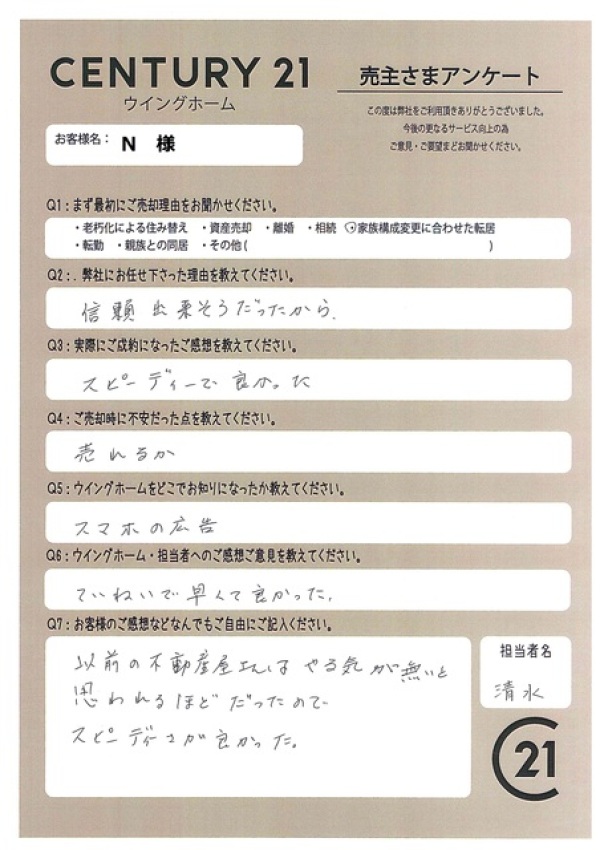 CENTURY 21
ウイングホーム
売主さまアンケート
この度は弊社をご利用頂きありがとうございました。
今後の更なるサービス向上の為
ご意見・ご要望までお聞かせください。
お客様名： N 様
Q1：まず最初にご売却理由をお聞かせください。
・老朽化による住み替え ・資産売却 ・離婚 ・相続 ・家族構成変更に合わせた転居
・転勤 ・親族との同居 ・その他( )
Q2：. 弊社にお任せ下さった理由を教えてください。
信頼出来そうだったから.
Q3：実際にご成約になったご感想を教えてください。
スピーディーで良かった
Q4：ご売却時に不安だった点を教えてください。
売れるか
Q5：ウイングホームをどこでお知りになったか教えてください。
スマホの広告
Q6：ウイングホーム・担当者へのご感想ご意見を教えてください。
ていねいで早くて良かった.
Q7：お客様のご感想などなんでもご自由にご記入ください。
以前の不動産屋さんはやる気が無いと
思われるほどだったので
スピーディーさが良かった。
担当者名
清水
21